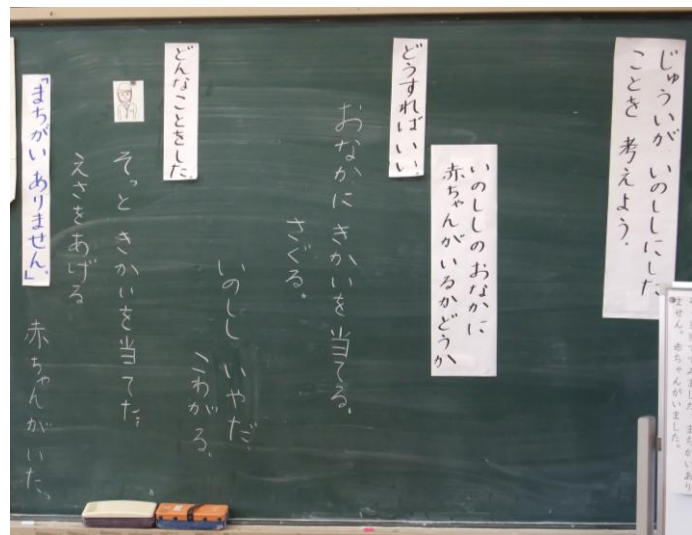 じゅういが いのししにした
ことを 考えよう。
いのししの おなかに
赤ちゃんがいるかどうか
どうすればいい
おなかに きかいを 当てる。
さぐる。
いのしし いやだ
こわがる、
どんなことをした
そっと きかいを 当てた。
えさをあげる
「まちがい ありません。」
赤ちゃんがいた。
ません。赤ちゃんがいました。